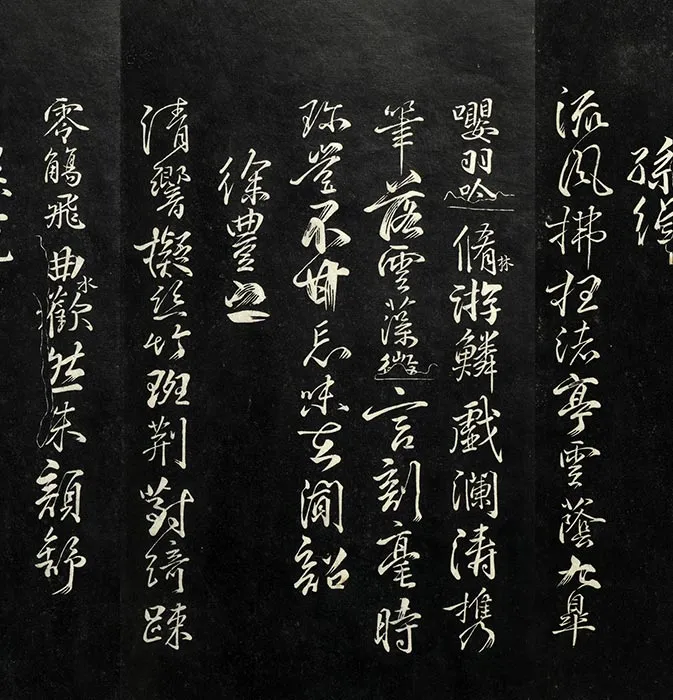 孫綽
流風拂枉渚亭雲蔭九皐
嚶羽吟脩林游鱗戲瀾濤携
筆落雲藻微言剖毫時
珍豈不甘忘味在聞韶
徐豐之
清響擬絲竹班荊對綺踈
零觴飛曲水歡然朱顏舒